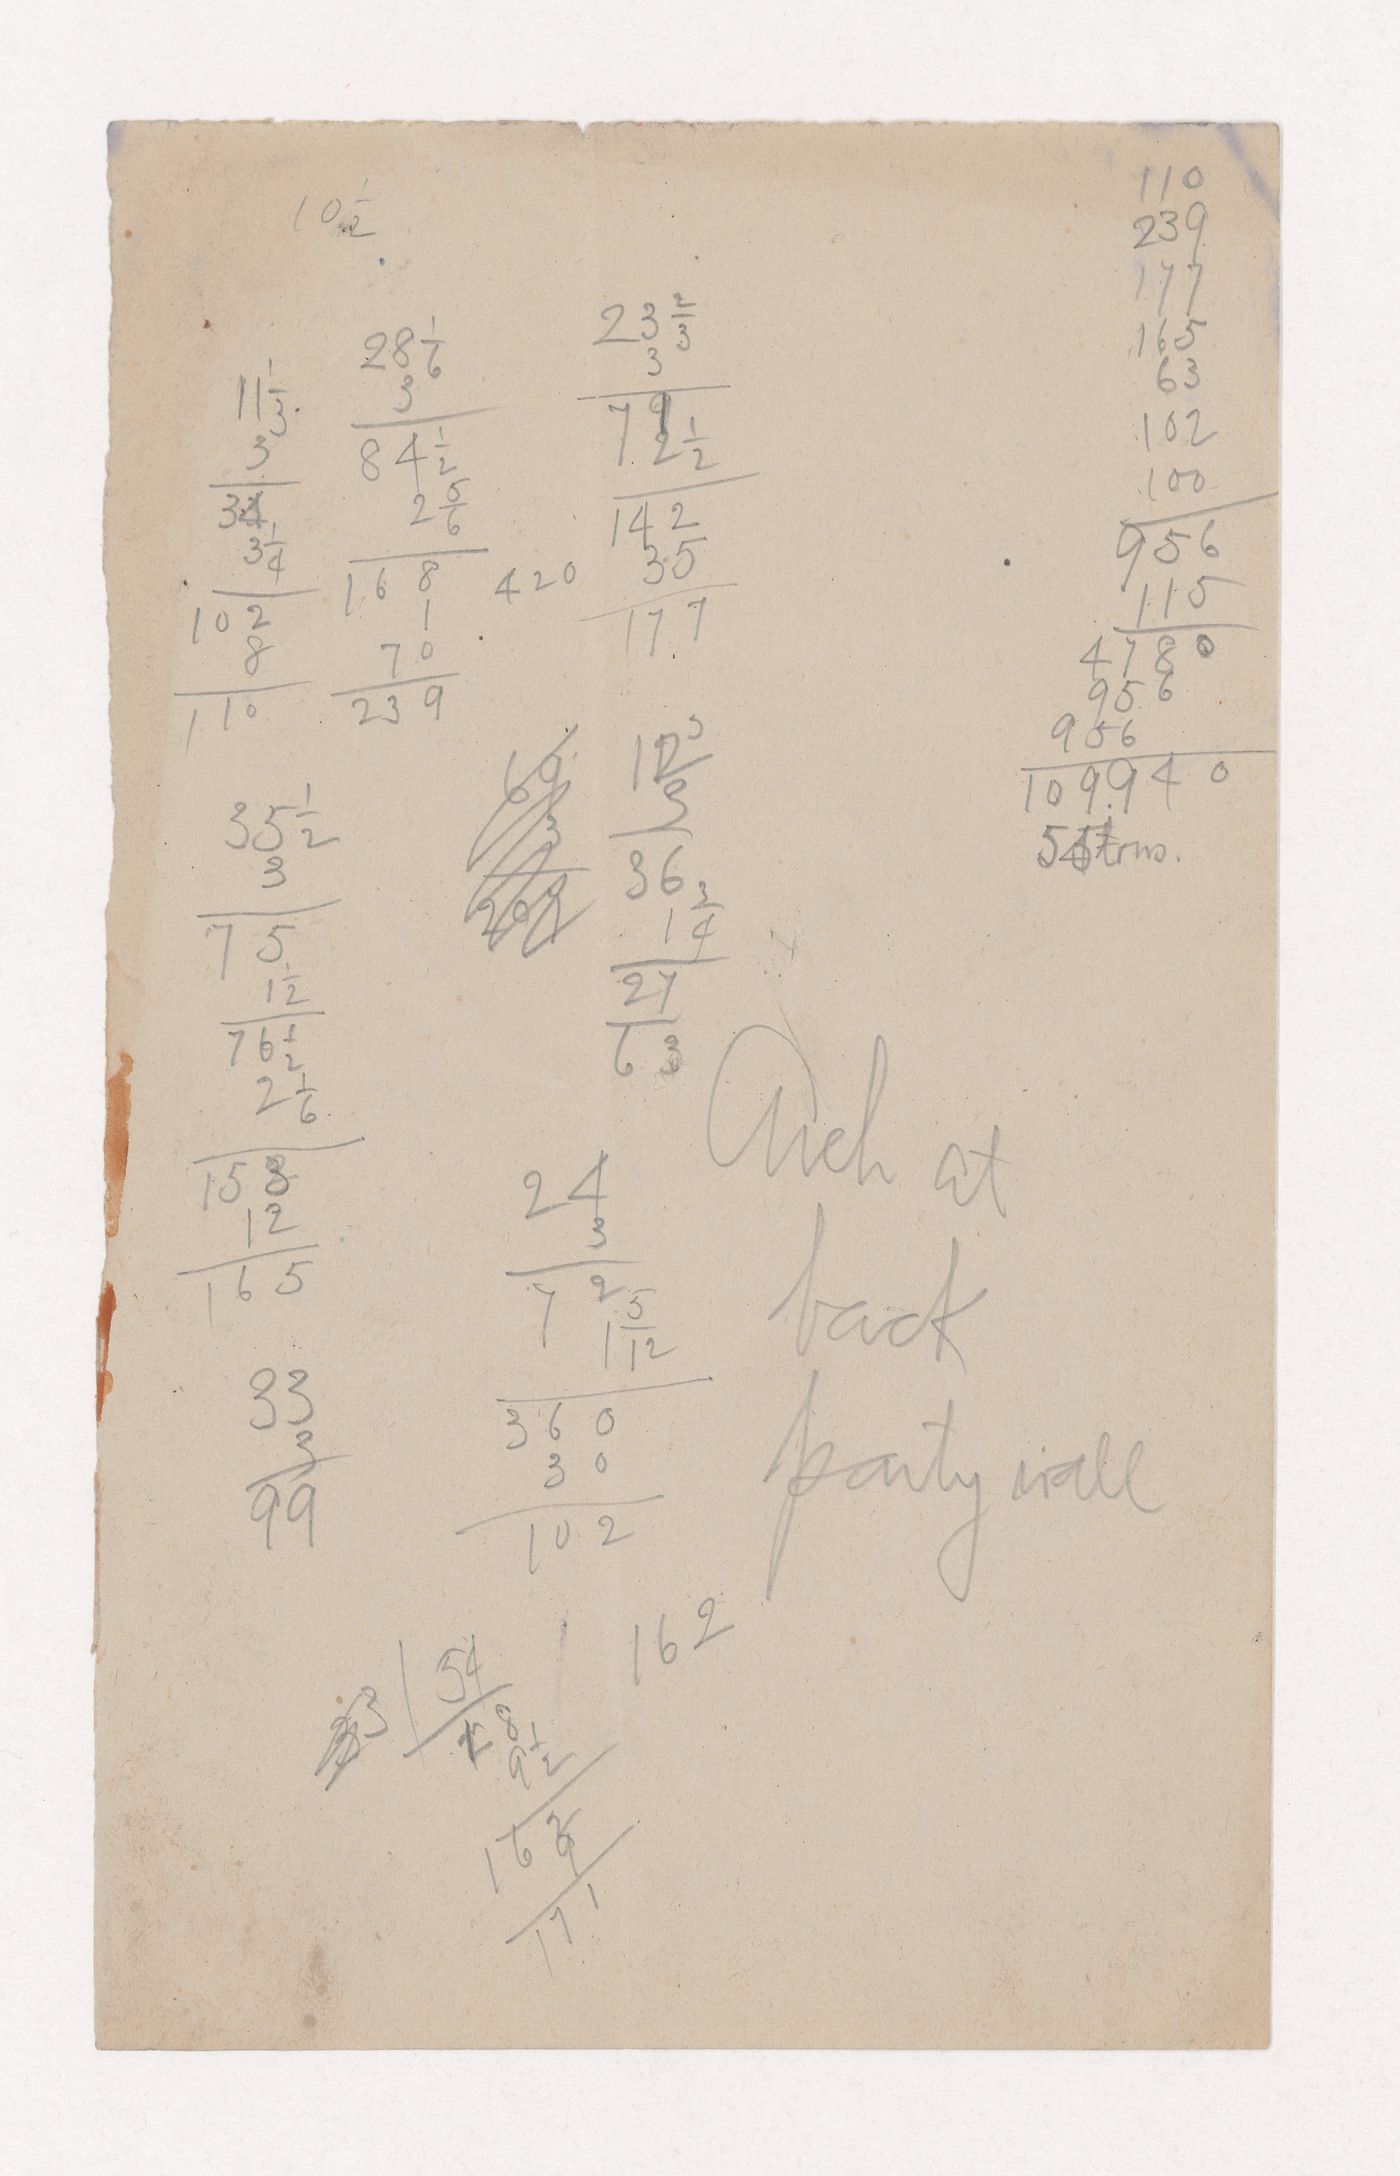 10 1/2
11 1/3
3
34
3 1/4
102
8
110
28 1/6
3
84 1/2
2 5/6
168
1
70
239
420
23 2/3
3
71
2 1/2
142
35
177
110
239
177
165
63
102
100
956
115
4780
956
956
109940
tons.
35 1/2
3
75
1 1/2
76 1/2
2 1/6
153
12
165
69
3
207
12
3
36
1 3/4
27
63
33
3
99
24
3
72
1 5/12
360
30
102
Arch at
back
party wall
162
3 54
18
9 1/2
162
9
171